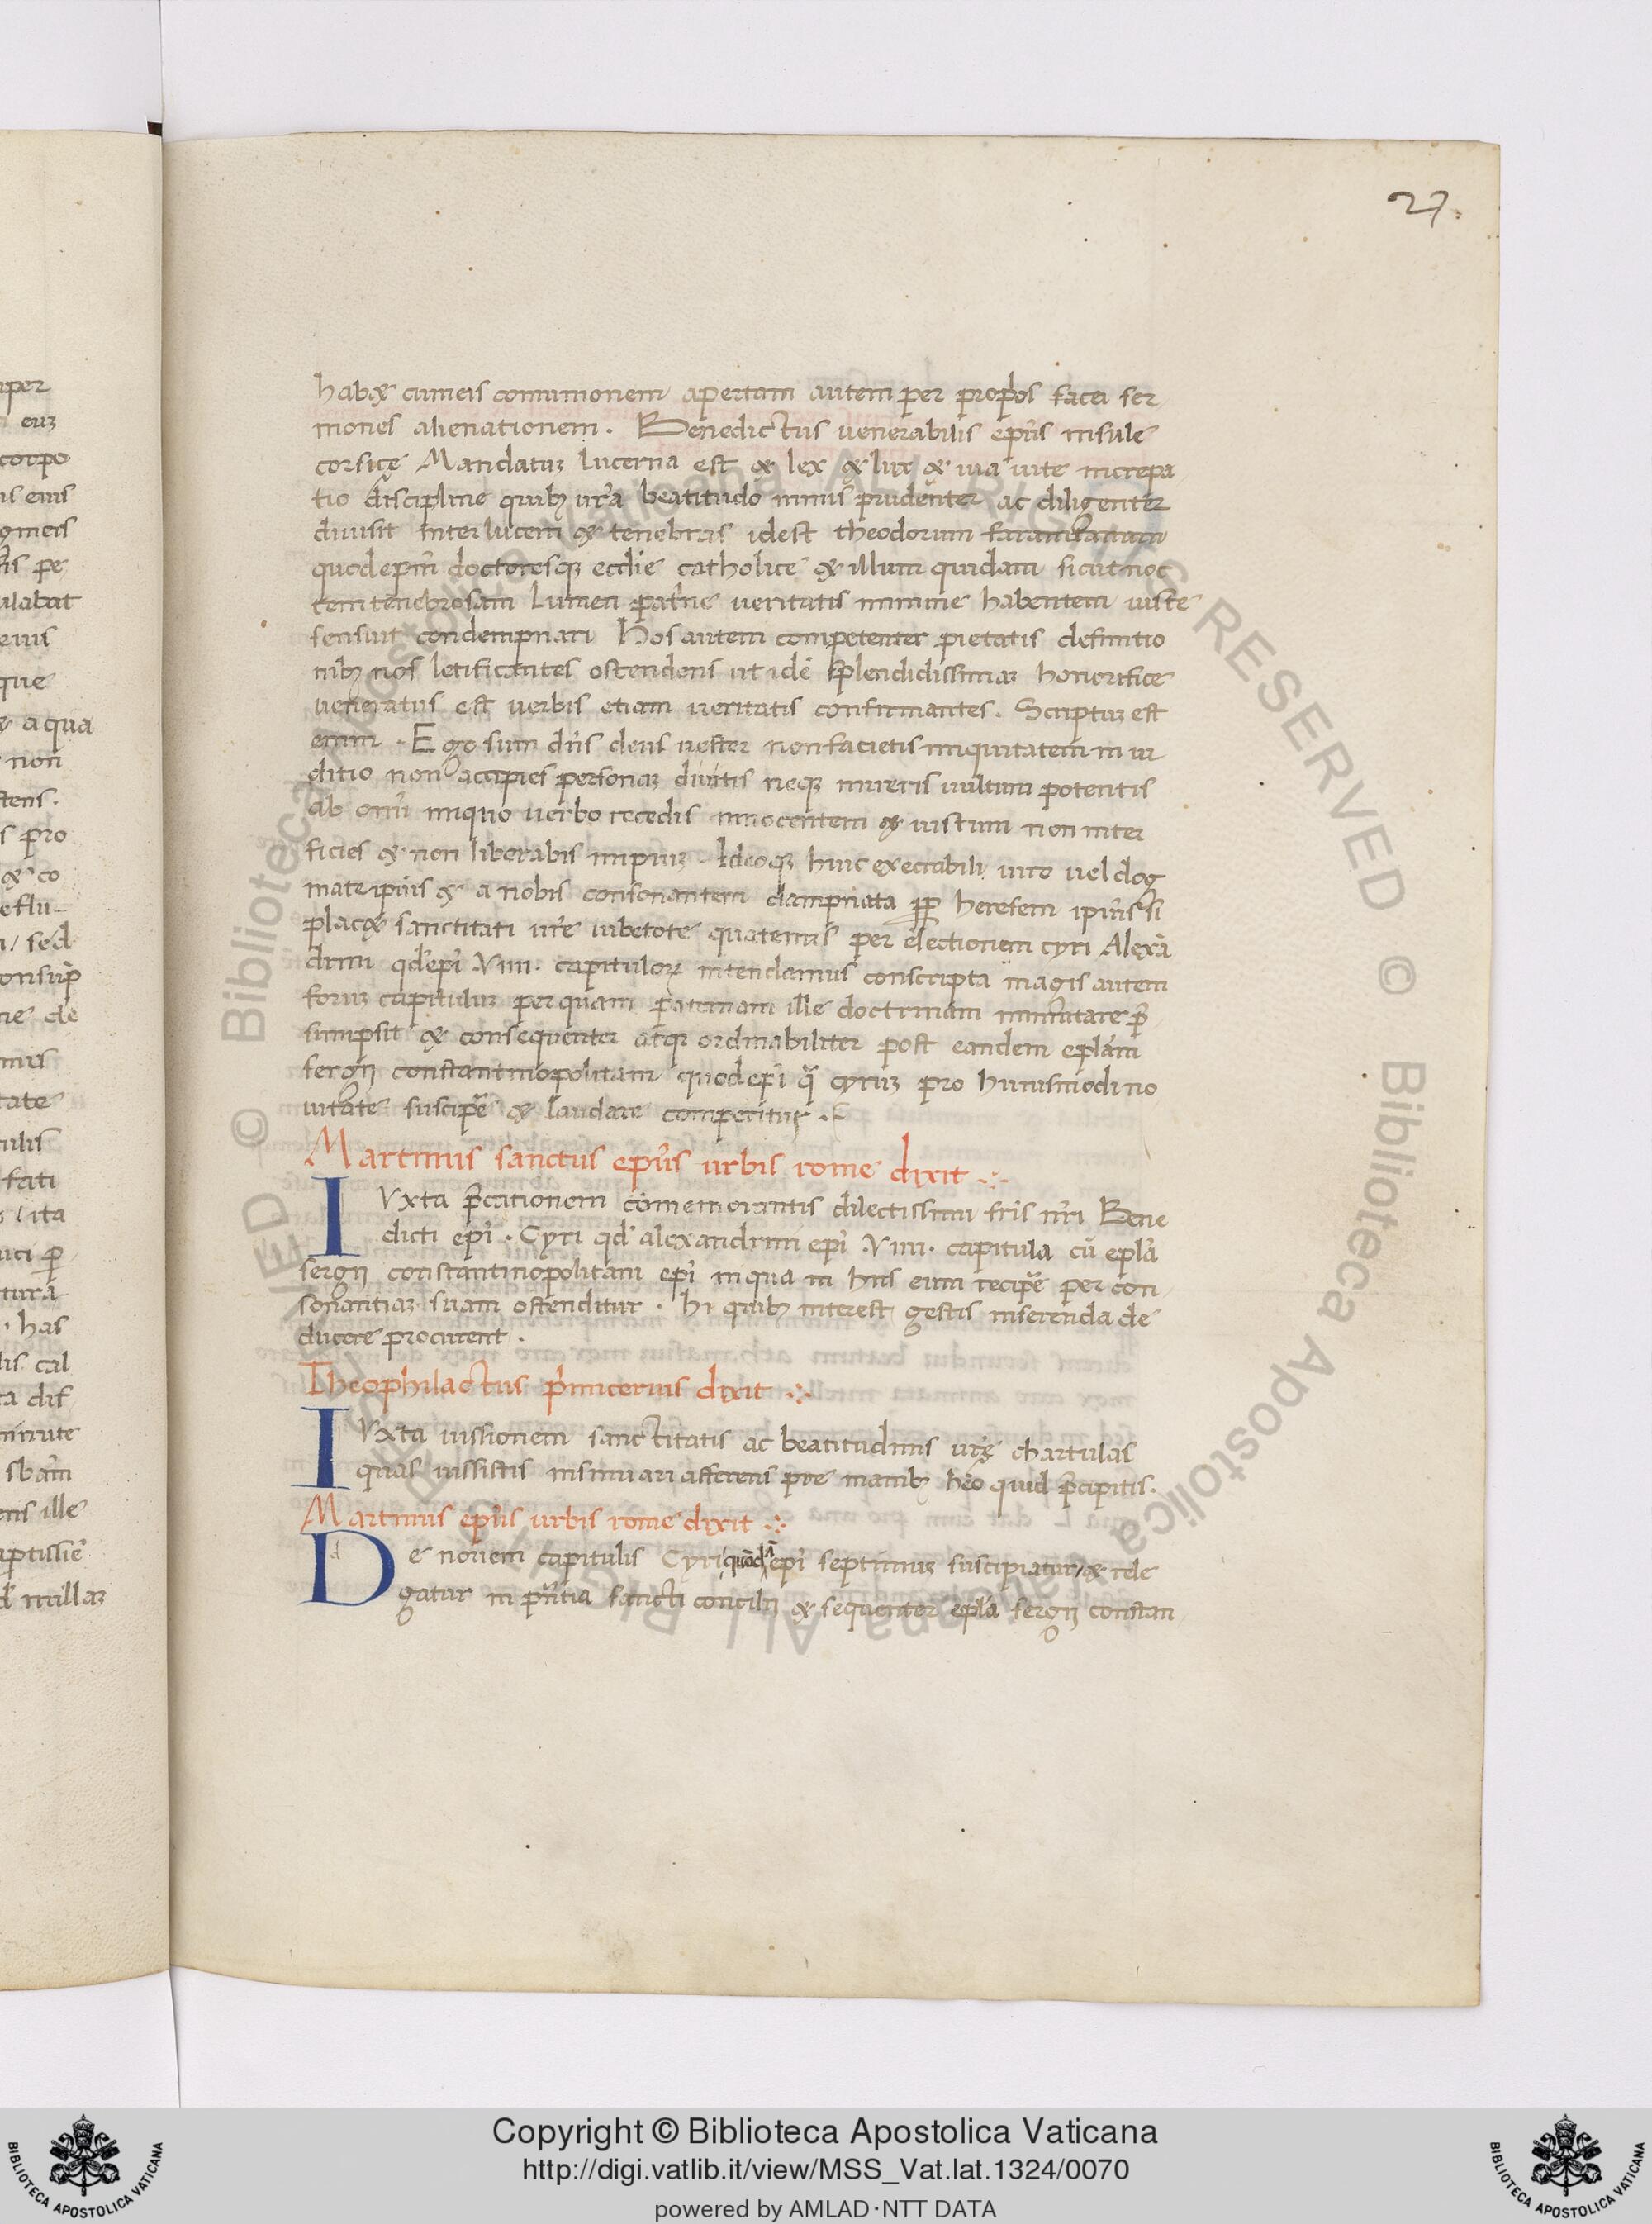 27.
habet cumeis comunionem apertam autem per propͥos facei ser
mones alienationem. Benedictus uenerabilis ep̃us insule
corsicę Mandatuꝫ lucerna est & lex & lux & uia uite increpa
tio discipline quibꝫ ur̃a beatitudo nimis prudenter ac diligenter
diuisit Inter lucem & tenebras idest theodorum faranitanum
quodep̃m doctoresqꝫ eccl̃ie catholice & illum quidam sicut noc
tem tenebrosam Lumen pat̃ne ueritatis minime habentem iuste
sensuit condempnari Hos autem competenter pietatis definitio
nibꝫ nos letificantes ostendens ut idẽ splendidissimaꝫ honorifice
ueneratus est uerbis etiam ueritatis confirmantes. Scriptuꝫ est
enim. Ego sum dñs deus uester non facietis iniquitatem in iu
ditio non accipies personaꝫ diuitis neqꝫ mireris uultum potentis
ab om̃i iniquo uerbo recedis innocentem & iustum non inter
ficies & non liberabis impiuꝫ. Ideoqꝫ huic execrabili uiro uel dog
mate ipiu̇s & a nobis consonantem dampnata ꝑp heresem ipiu̇s si
placet sanctitati ur̃e iubetote quatenus per electionem cyri Alexã
drini qd̃ ep̃i VIIII. capituloꝝ intendamus conscripta magis autem
foruꝫ capituluꝫ per quam p̃aternam ille doctrinam inmutare p̃
sumpsit & consequenter atqꝫ ordinabiliter post eandem epl̃am
sergij constantinopolitam quodep̃i q̃ cyruꝫ pro huiusmodi no
uitate suscip̃e & laudare comperitur.
Martinus sanctus ep̃us urbis rome dixit
IVxta p̃cationem comemorantis dilectissimi fr̃is nr̃i Bene
dicti ep̃i. Cyri qd̃ alexandrini ep̃i .VIIII. capitula cũ epl̃a
sergij constantinopolitam ep̃i inqua in hiis eum recip̃e per con
sonantiaꝫ suam ostenditur. hi quibꝫ interest gestis inserenda de
ducere procurent.
Theophilactus p̃imicerius dixit
IVxta iussionem sanctitatis ac beatitudinis ur̃ę chartulas
quas iussistis insinuari afferens pre manibꝫ hẽo quid p̃cipitis.
Martinus ep̃us urbis rome dixit
De nouem capitulis Cyri quod ep̃i septimuꝫ suscipiatur & rele
gatur in p̃ñtia sancti concilij & sequenter epl̃a sergij constan
Copyright © Biblioteca Apostolica Vaticana
http://digi.vatlib.it/view/MSS_Vat.lat.1324/0070
powered by AMLAD·NTT DATA